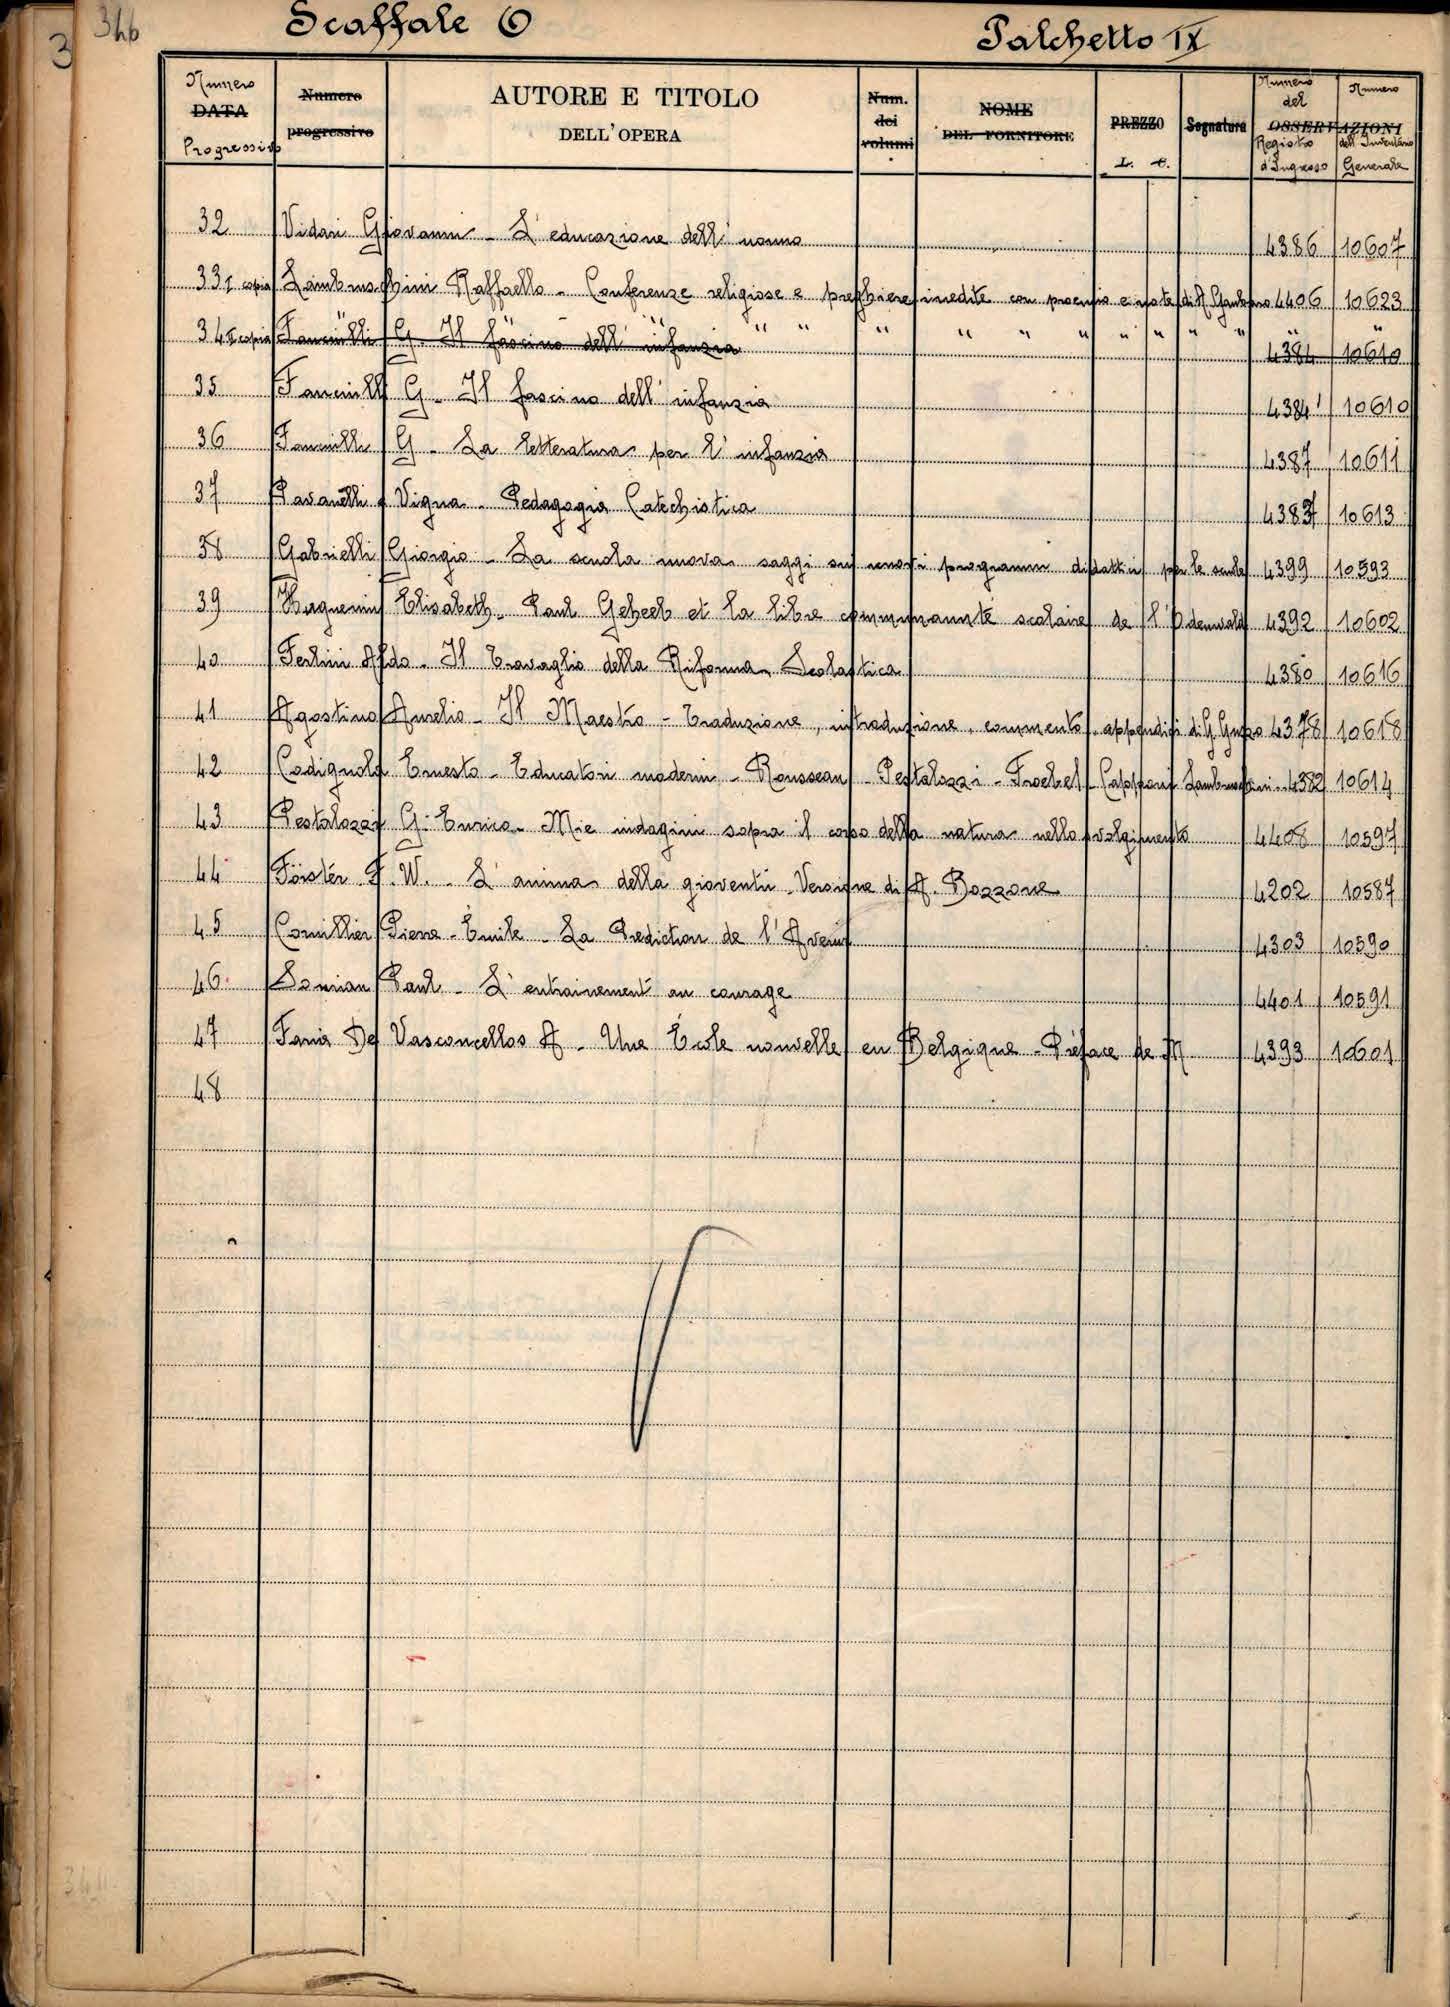 346
3
Scaffale O
Palchetto IX
Numero DATA Progressivo
Numero progressivo
AUTORE E TITOLO DELL'OPERA
Num. dei volumi
NOME DEL FORNITORE
PREZZO L. C.
Segnatura
OSSERVAZIONI
Numero del Registro d'Ingresso
Numero dell'Inventario Generale
32 Vidari Giovanni - L'educazione dell'uomo 4386 10607
33 I copia Lambruschini Raffaello - Conferenze religiose e preghiere inedite con proemio e note di A. Gambaro 4406 10623
34 II copia " " " " " " " " " " " " " "
Fanciulli G. Il fascino dell'infanzia 4384 10610
35 Fanciulli G - Il fascino dell'infanzia 4384 10610
36 Fanciulli G - La letteratura per l'infanzia 4387 10611
37 Pavanelli e Vigna - Pedagogia Catechistica 4383 10613
38 Gabrielli Giorgio - La scuola nuova saggi sui nuovi programmi didattici per le scuole 4399 10593
39 Huguenin Elisabeth - Paul Geheeb et la libre communauté scolaire de l'Odenwald 4392 10602
40 Ferlini Aldo - Il Travaglio della Riforma Scolastica 4380 10616
41 Agostino Aurelio - Il Maestro - Traduzione, introduzione, commento, appendici di G. Guzzo 4378 10618
42 Codignola Ernesto - Educatori moderni - Rousseau - Pestalozzi - Froebel - Capponi Lambruschini 4382 10614
43 Pestalozzi G. Enrico - Mie indagini sopra il corso della natura nello svolgimento 4408 10597
44 Förster F. W. - L'anima della gioventù - Versione di A. Bozzone 4202 10587
45 Cornillier Pierre - Émile - La Prediction de l'Avenir 4303 10590
46 Souriau Paul - L'entrainement au courage 4401 10591
47 Faria De Vasconcellos A - Une École nouvelle en Belgique - Préface de M 4393 10601
48